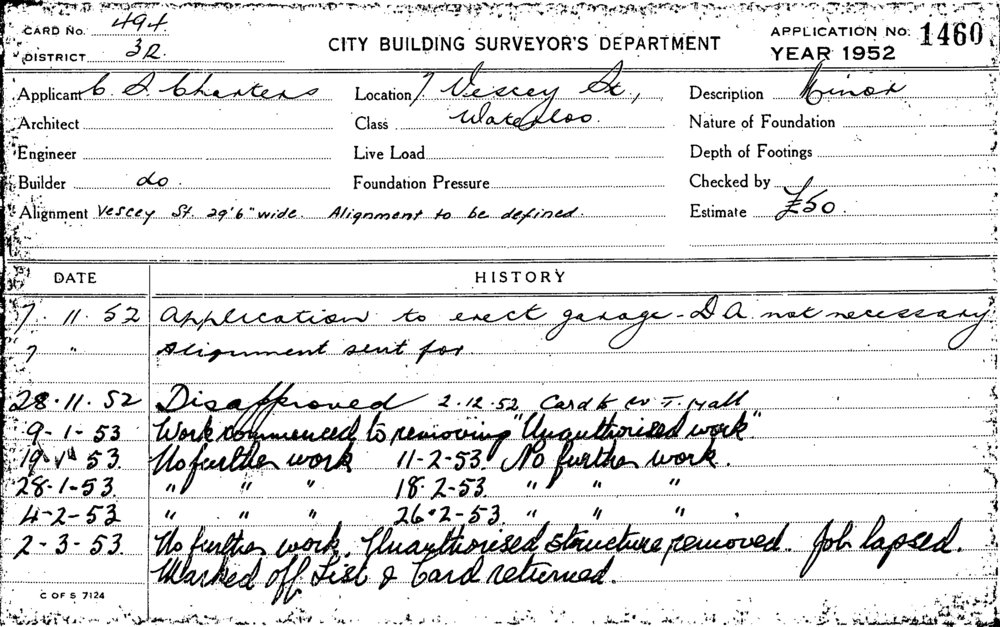 CARD No. 494
DISTRICT 3R
CITY BUILDING SURVEYOR'S DEPARTMENT
APPLICATION No. 1460
YEAR 1952
Applicant C. J. Charters
Location 7 Vescey St,
Description Minor
Architect
Class Waterloo.
Nature of Foundation
Engineer
Live Load
Depth of Footings
Builder do.
Foundation Pressure
Checked by
Alignment Vescey St. 29'6" wide. Alignment to be defined.
Estimate £50.
DATE HISTORY
7. 11. 52 Application to erect garage - D.A. not necessary
7 " Alignment sent for.
28. 11. 52 Disapproved 2.12.52 Card to T. Hall
9-1-53 Work commenced to removing "Unauthorised work"
19 " 53 No further work 11-2-53. No further work.
28-1-53 " " " 18-2-53. " " "
4-2-53 " " " 26-2-53. " " "
2-3-53. No further work. Unauthorised structure removed. Job lapsed.
Marked off List & Card returned.
C OF S 7124